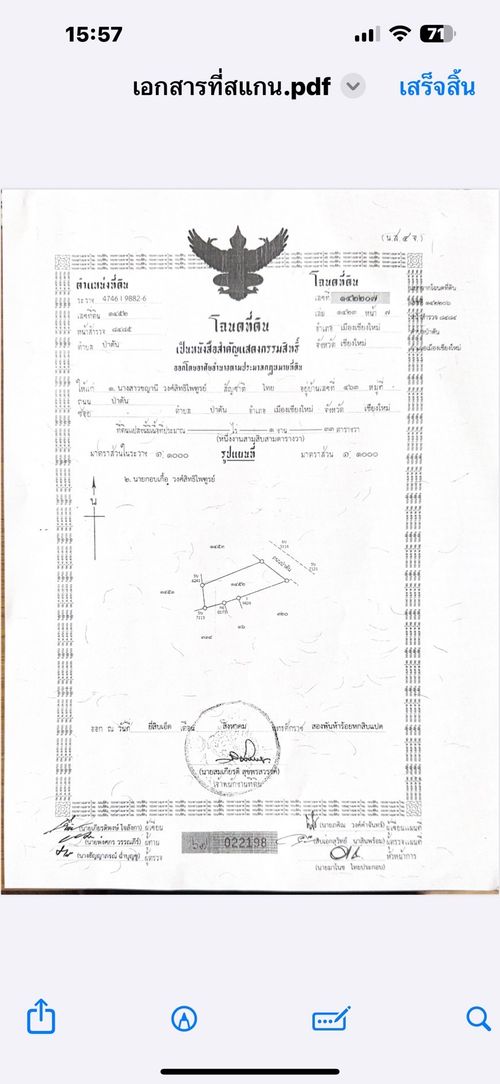 15:57
71
เอกสารที่สแกน.pdf
เสร็จสิ้น
(น.ส.๔ จ.)
ตำแหน่งที่ดิน
ระวาง 4746 I 9882-6
เลขที่ดิน ๑๔๕๒
หน้าสำรวจ ๘๔๘๕
ตำบล ป่าตัน
โฉนดที่ดิน
เลขที่ ๑๔๒๒๐๗
เล่ม ๑๔๒๓ หน้า ๗
อำเภอ เมืองเชียงใหม่
จังหวัด เชียงใหม่
โฉนดที่ดิน
เป็นหนังสือสำคัญแสดงกรรมสิทธิ์
ออกโดยอาศัยอำนาจตามประมวลกฎหมายที่ดิน
ให้แก่ ๑. นางสาวชญานี วงศ์สิทธิไพฑูรย์ สัญชาติ ไทย อยู่บ้านเลขที่ ๔๖๓ หมู่ที่ -
ถนน ป่าตัน
ซอย - ตำบล ป่าตัน อำเภอ เมืองเชียงใหม่ จังหวัด เชียงใหม่
ที่ดินแปลงนี้มีเนื้อที่ประมาณ - ไร่ ๑ งาน ๓๓ ตารางวา
(หนึ่งงานสามสิบสามตารางวา)
มาตราส่วนในระวาง ๑: ๑๐๐๐
รูปแผนที่
มาตราส่วน ๑: ๑๐๐๐
๒. นายกอบเกื้อ วงศ์สิทธิไพฑูรย์
น
๑๔๕๓
๑๔๕๒
๑๔๕๑
๓๒๐
๑๖
๓๓๔
ออก ณ วันที่ ยี่สิบเอ็ด เดือน สิงหาคม พุทธศักราช สองพันห้าร้อยหกสิบแปด
(นายสมเกียรติ สุขพรสวรรค์)
เจ้าพนักงานที่ดิน
(นายเกียรติพงษ์ ใจลังกา) ผู้เขียน
(นายพงศกร วรรณภีร์) ผู้ทาน
ผู้ตรวจ
๒๗ 022198
ผู้เขียนแผนที่
(สิบเอกสุวิทย์ นาสินพร้อม) ผู้ตรวจแผนที่
หัวหน้าการ
(นายมาโนช ไทยประกอบ)